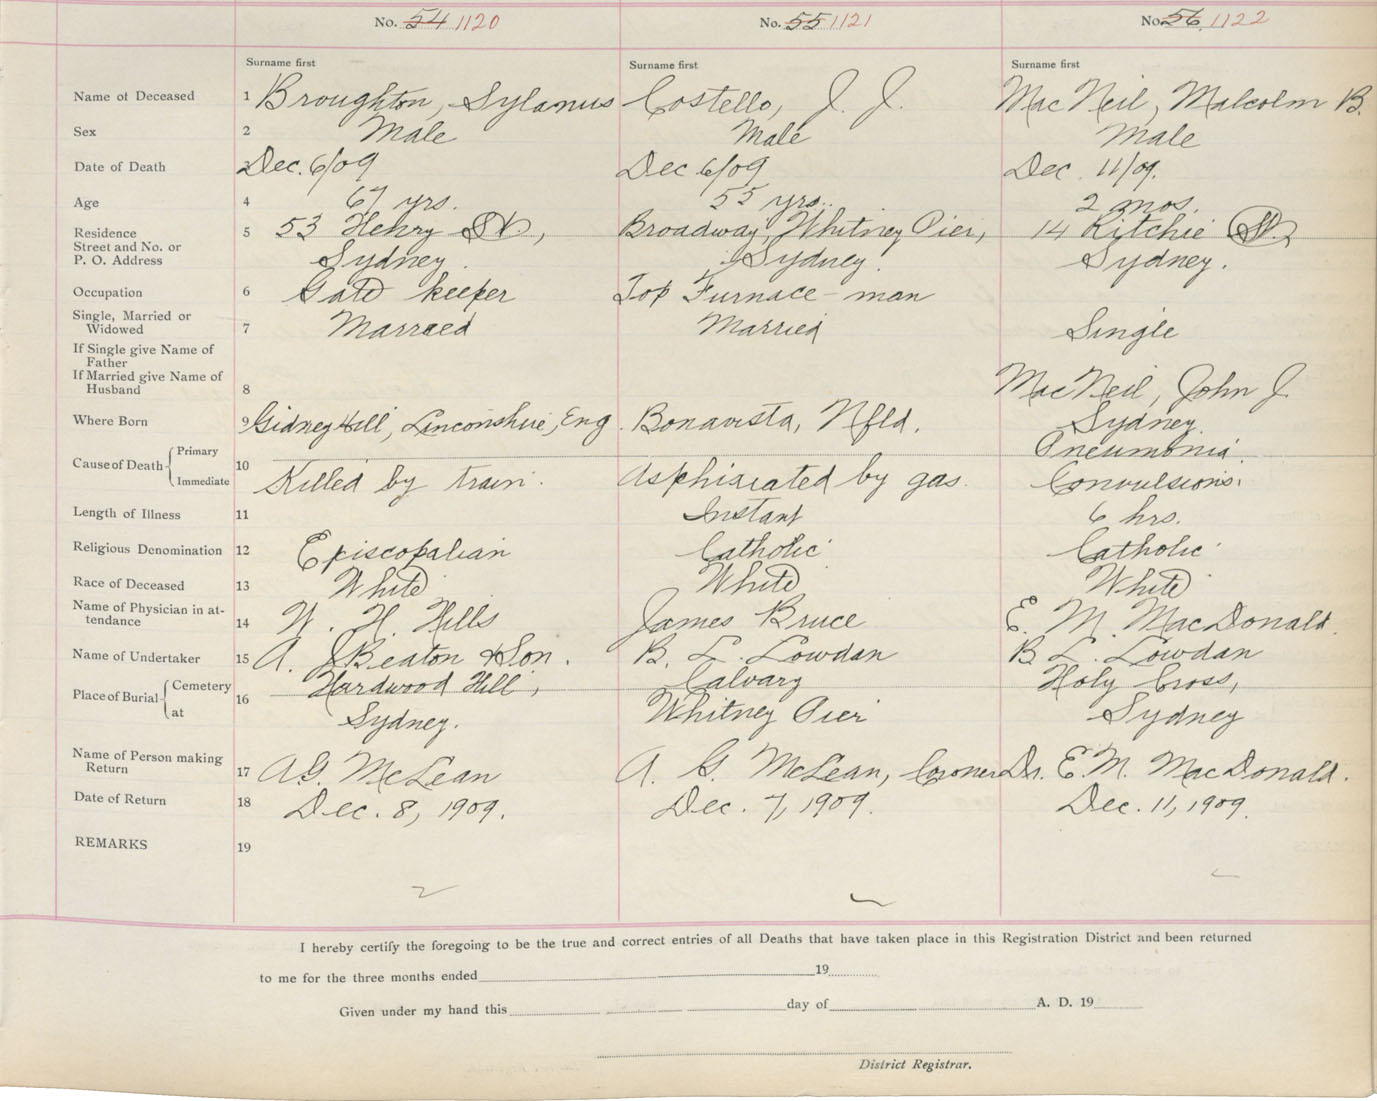 No. 54 1120 No. 55 1121 No. 56 1122
Surname first Surname first Surname first
Name of Deceased 1 Broughton, Sylanus Costello, J. J. MacNeil, Malcolm B.
Sex 2 Male Male Male
Date of Death 3 Dec. 6/09 Dec 6/09 Dec. 11/09.
Age 4 67 yrs. 55 yrs. 2 mos.
Residence 5 53 Henry St., Broadway, Whitney Pier, 14 Ritchie St.,
Street and No. or
P. O. Address Sydney. Sydney. Sydney.
Occupation 6 Gate keeper Top Furnace-man
Single, Married or
Widowed 7 Marraed Married Single
If Single give Name of
Father
If Married give Name of
Husband 8 MacNeil, John J.
Where Born 9 Gidney Hill, Linconshire, Eng. Bonavista, Nfld. Sydney.
Cause of Death Primary Pneumonia.
10
Immediate Killed by train. Asphixiated by gas. Convulsions.
Length of Illness 11 Instant 6 hrs.
Religious Denomination 12 Episcopalian Catholic Catholic
Race of Deceased 13 White White White
Name of Physician in at-
tendance 14 W. H. Hills James Bruce E. M. MacDonald.
Name of Undertaker 15 A. J Beaton & Son. B. L. Lowdan B. L. Lowdan
Place of Burial Cemetery Hardwood Hill, Calvary Holy Cross,
16
at Sydney. Whitney Pier Sydney
Name of Person making
Return 17 A G. McLean A. G. McLean, Coroner Dr. E. M. MacDonald.
Date of Return 18 Dec. 8, 1909. Dec. 7, 1909. Dec. 11, 1909.
REMARKS 19
I hereby certify the foregoing to be the true and correct entries of all Deaths that have taken place in this Registration District and been returned
to me for the three months ended 19
Given under my hand this day of A. D. 19
District Registrar.